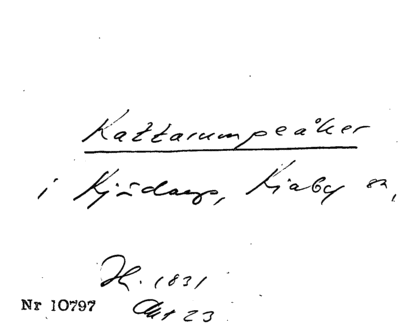 Kattarumpeåker
i Kjuge, Kiaby sn,
H. 1831
Akt 23
Nr 10797